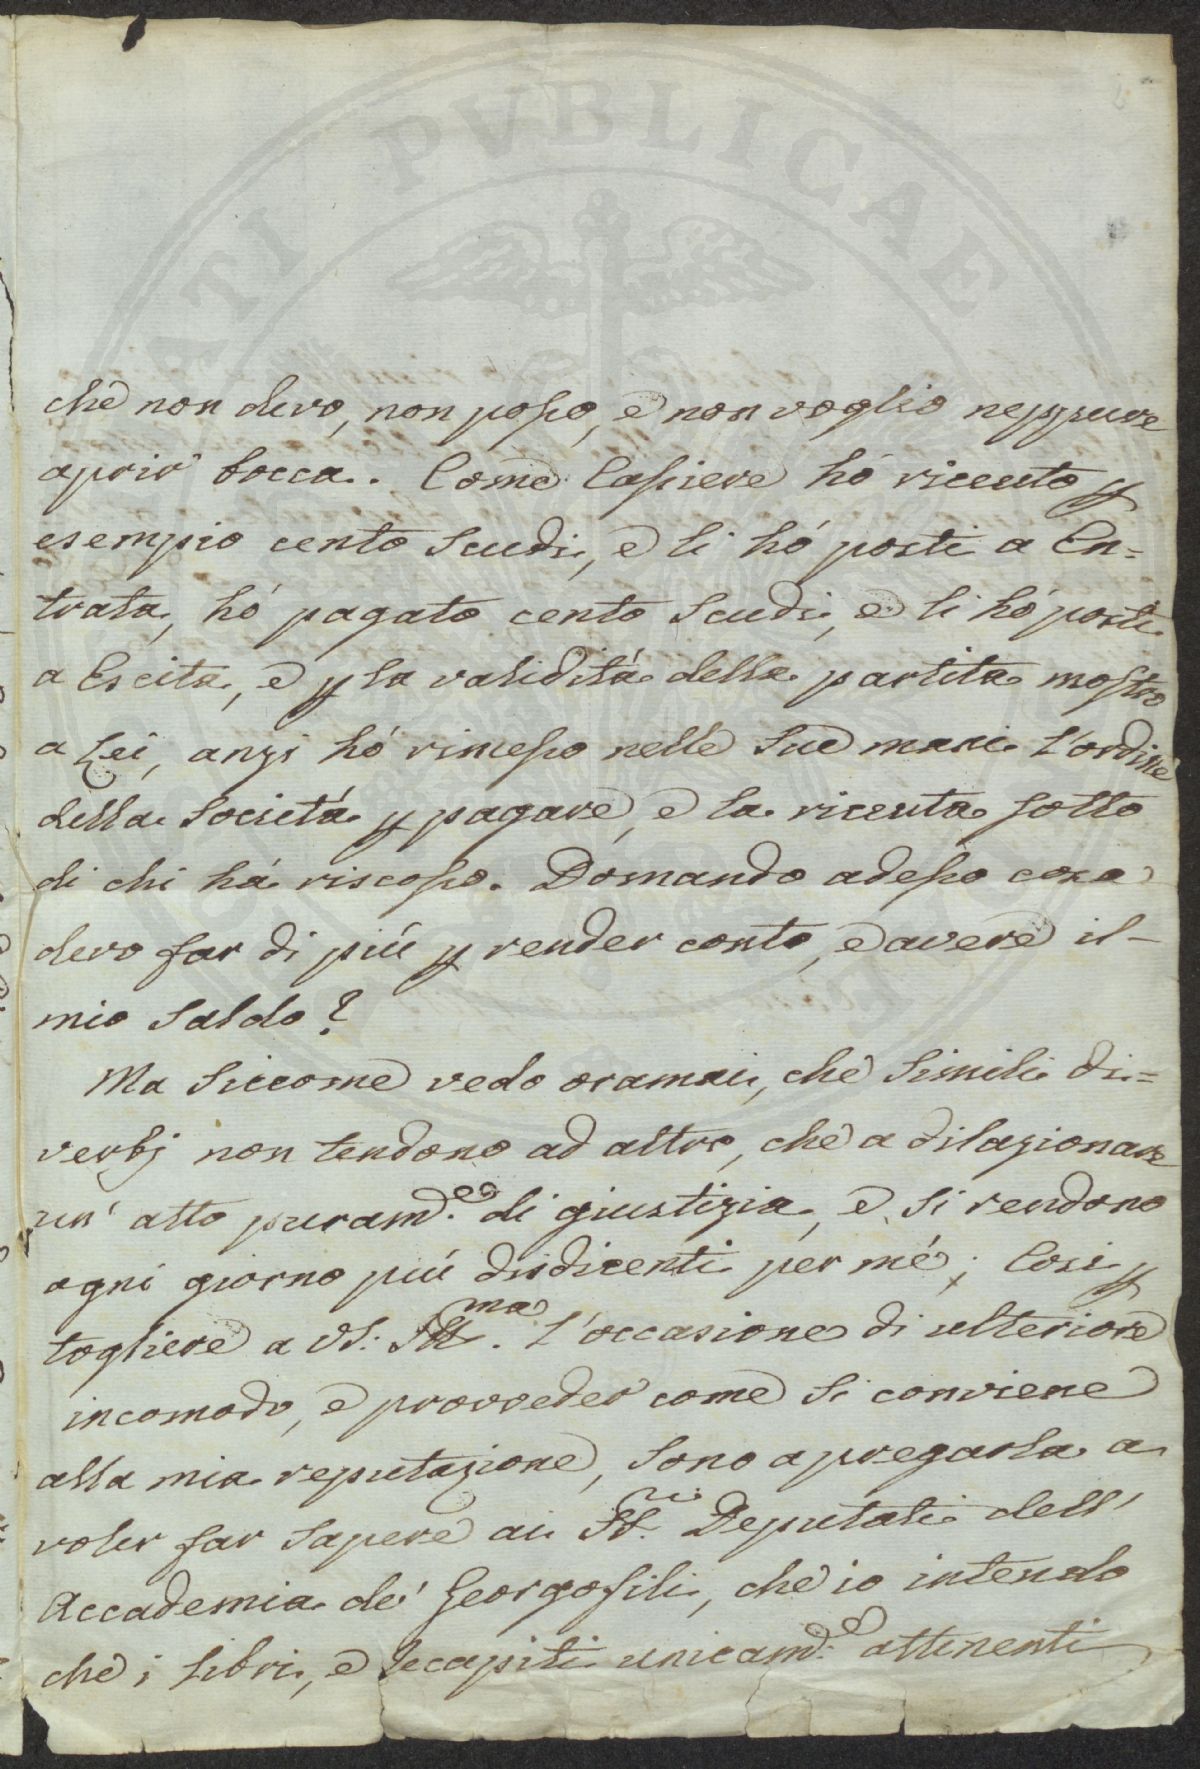 PVBLICAE
che non devo, non posso, e non voglio neppure
aprir' bocca. Come Cassiere hó ricevuto p
esempio cento Scudi, e li hó posti a En=
trata, hó pagato cento Scudi, e li hó posti
a Escita, e p la validitá della partita mostro
a Lei, anzi hó rimesso nelle Sue mani L'ordine
della Societá p pagare, e la ricevuta sotto
di chi há riscosso. Domando adesso cosa
devo far di piú p render conto, e avere il-
mio Saldo?
Ma Siccome vedo oramai, che Simili di=
verbj non tendono ad altro, che a dilazionare
un' atto puram.e di giustizia, e Si rendono
ogni giorno piú disdicenti per mé; Cosi p
togliere a VS: Ill.ma L'occasione di ulteriore
incomodo, e provveder come Si conviene
alla mia reputazione, Sono a pregarla a
voler far Sapere ai SS.ri Deputati dell'
Accademia de' Georgofili, che io intendo
che i Libri, e Recapiti unicam.e attenenti